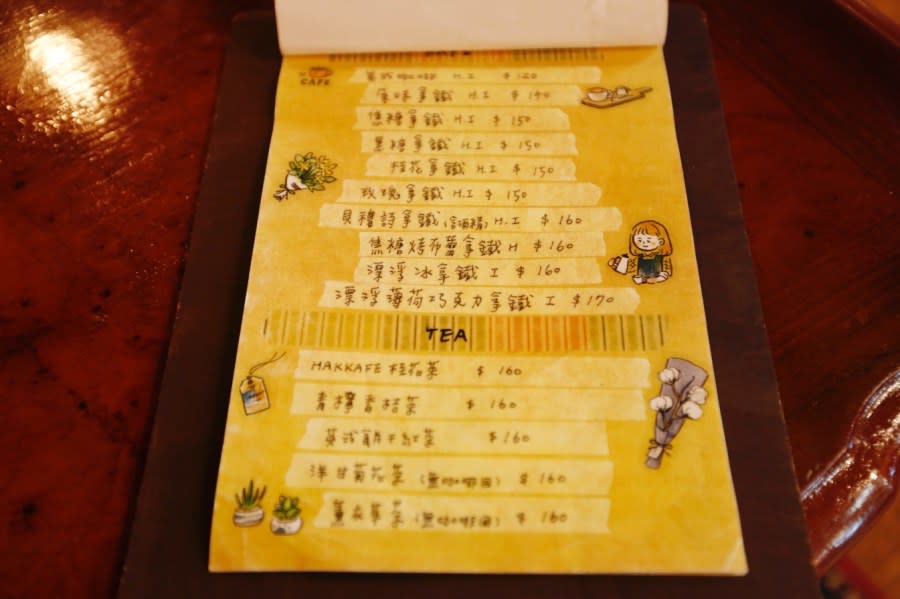 CAFE
美式咖啡 H.I $120
原味拿鐵 H.I $140
焦糖拿鐵 H.I $150
黑糖拿鐵 H.I $150
桂花拿鐵 H.I $150
玫瑰拿鐵 H.I $150
貝禮詩拿鐵(含酒精) H.I $160
焦糖烤布蕾拿鐵 H $160
漂浮冰拿鐵 I $160
漂浮薄荷巧克力拿鐵 I $170
TEA
HAKKAFE 桂花茶 $160
青檸青桔茶 $160
英式 紅茶 $160
洋甘菊花茶 (無咖啡因) $160
薰衣草茶 (無咖啡因) $160